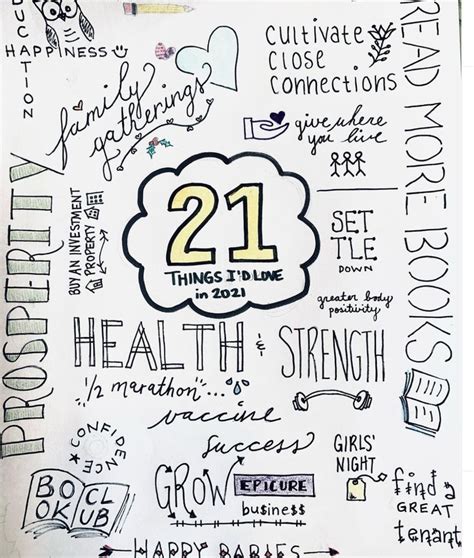 DUCTION
HAPPINESS
cultivate
close
connections
READ MORE BOOKS
family
gatherings
give where
you live
PROSPERITY
BUY AN INVESTMENT
PROPERTY
21
THINGS I'D LOVE
in 2021
SET
TLE
DOWN
greater body
positivity
HEALTH & STRENGTH
1/2 marathon...
vaccine
success
CONFIDENCE
BOOK
CLUB
GROW EPICURE
bu$ine$$
GIRLS'
NIGHT
find a
GREAT
tenant
HAPPY BABIES